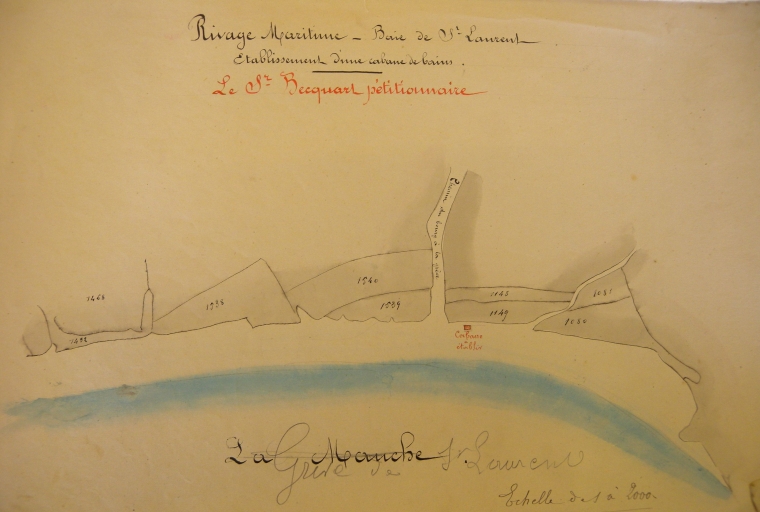 Rivage Maritime - Baie de St Laurent
Etablissement d'une cabane de bains.
Le Sr Becquart pétitionnaire
Chemin du bourg à la mer
1540
1539
1538
1466
1148
1149
1051
1050
Cabane
établie
La Manche
Grève de St Laurent
Echelle de 1 à 2000.